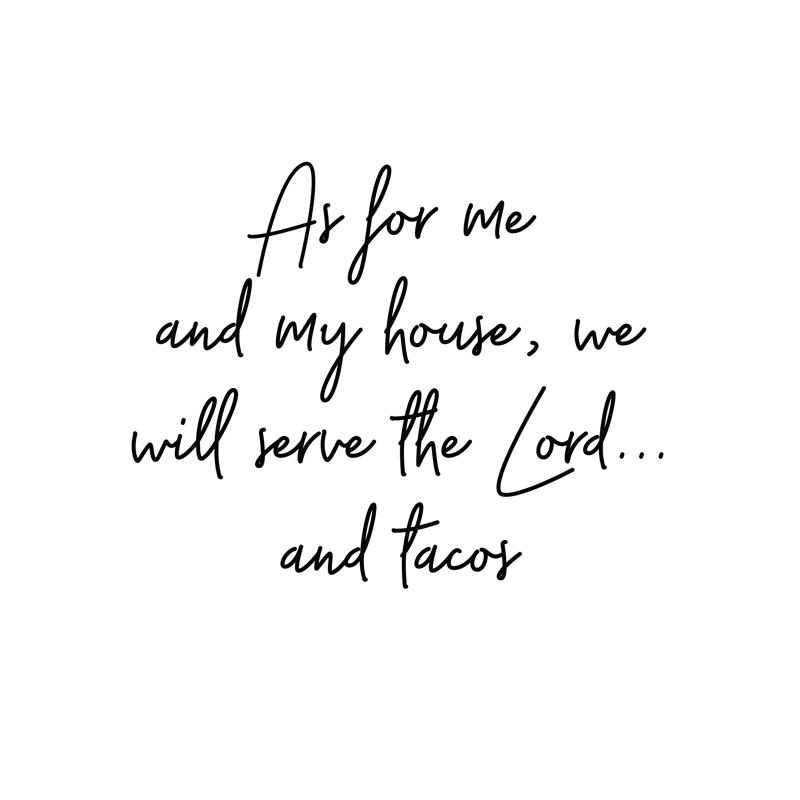 As for me
and my house, we
will serve the Lord...
and tacos